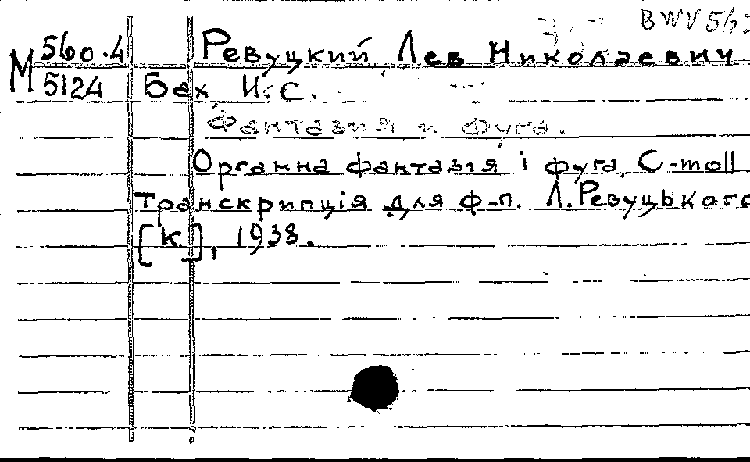 BWV 56
М 560.4 Ревуцкий Лев Николаевич
5124 Бах И.С.
Фантазия и фуга.
Органна фантазія і фуга C-moll
Транскрипція для ф-п. Л. Ревуцького
[К], 1938.